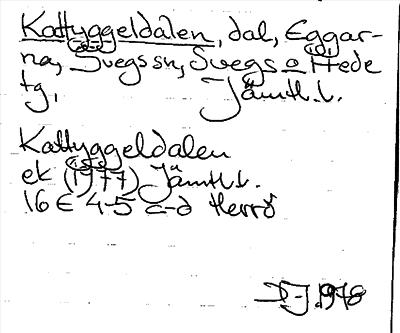 Kattuggeldalen, dal, Eggar-
na, Svegs sn, Svegs o Hede
tg, Jämtl.l.
Kattuggeldalen
ek (1977) Jämtl.l.
16 E 4-5 c-d Herrö
DJ 1978